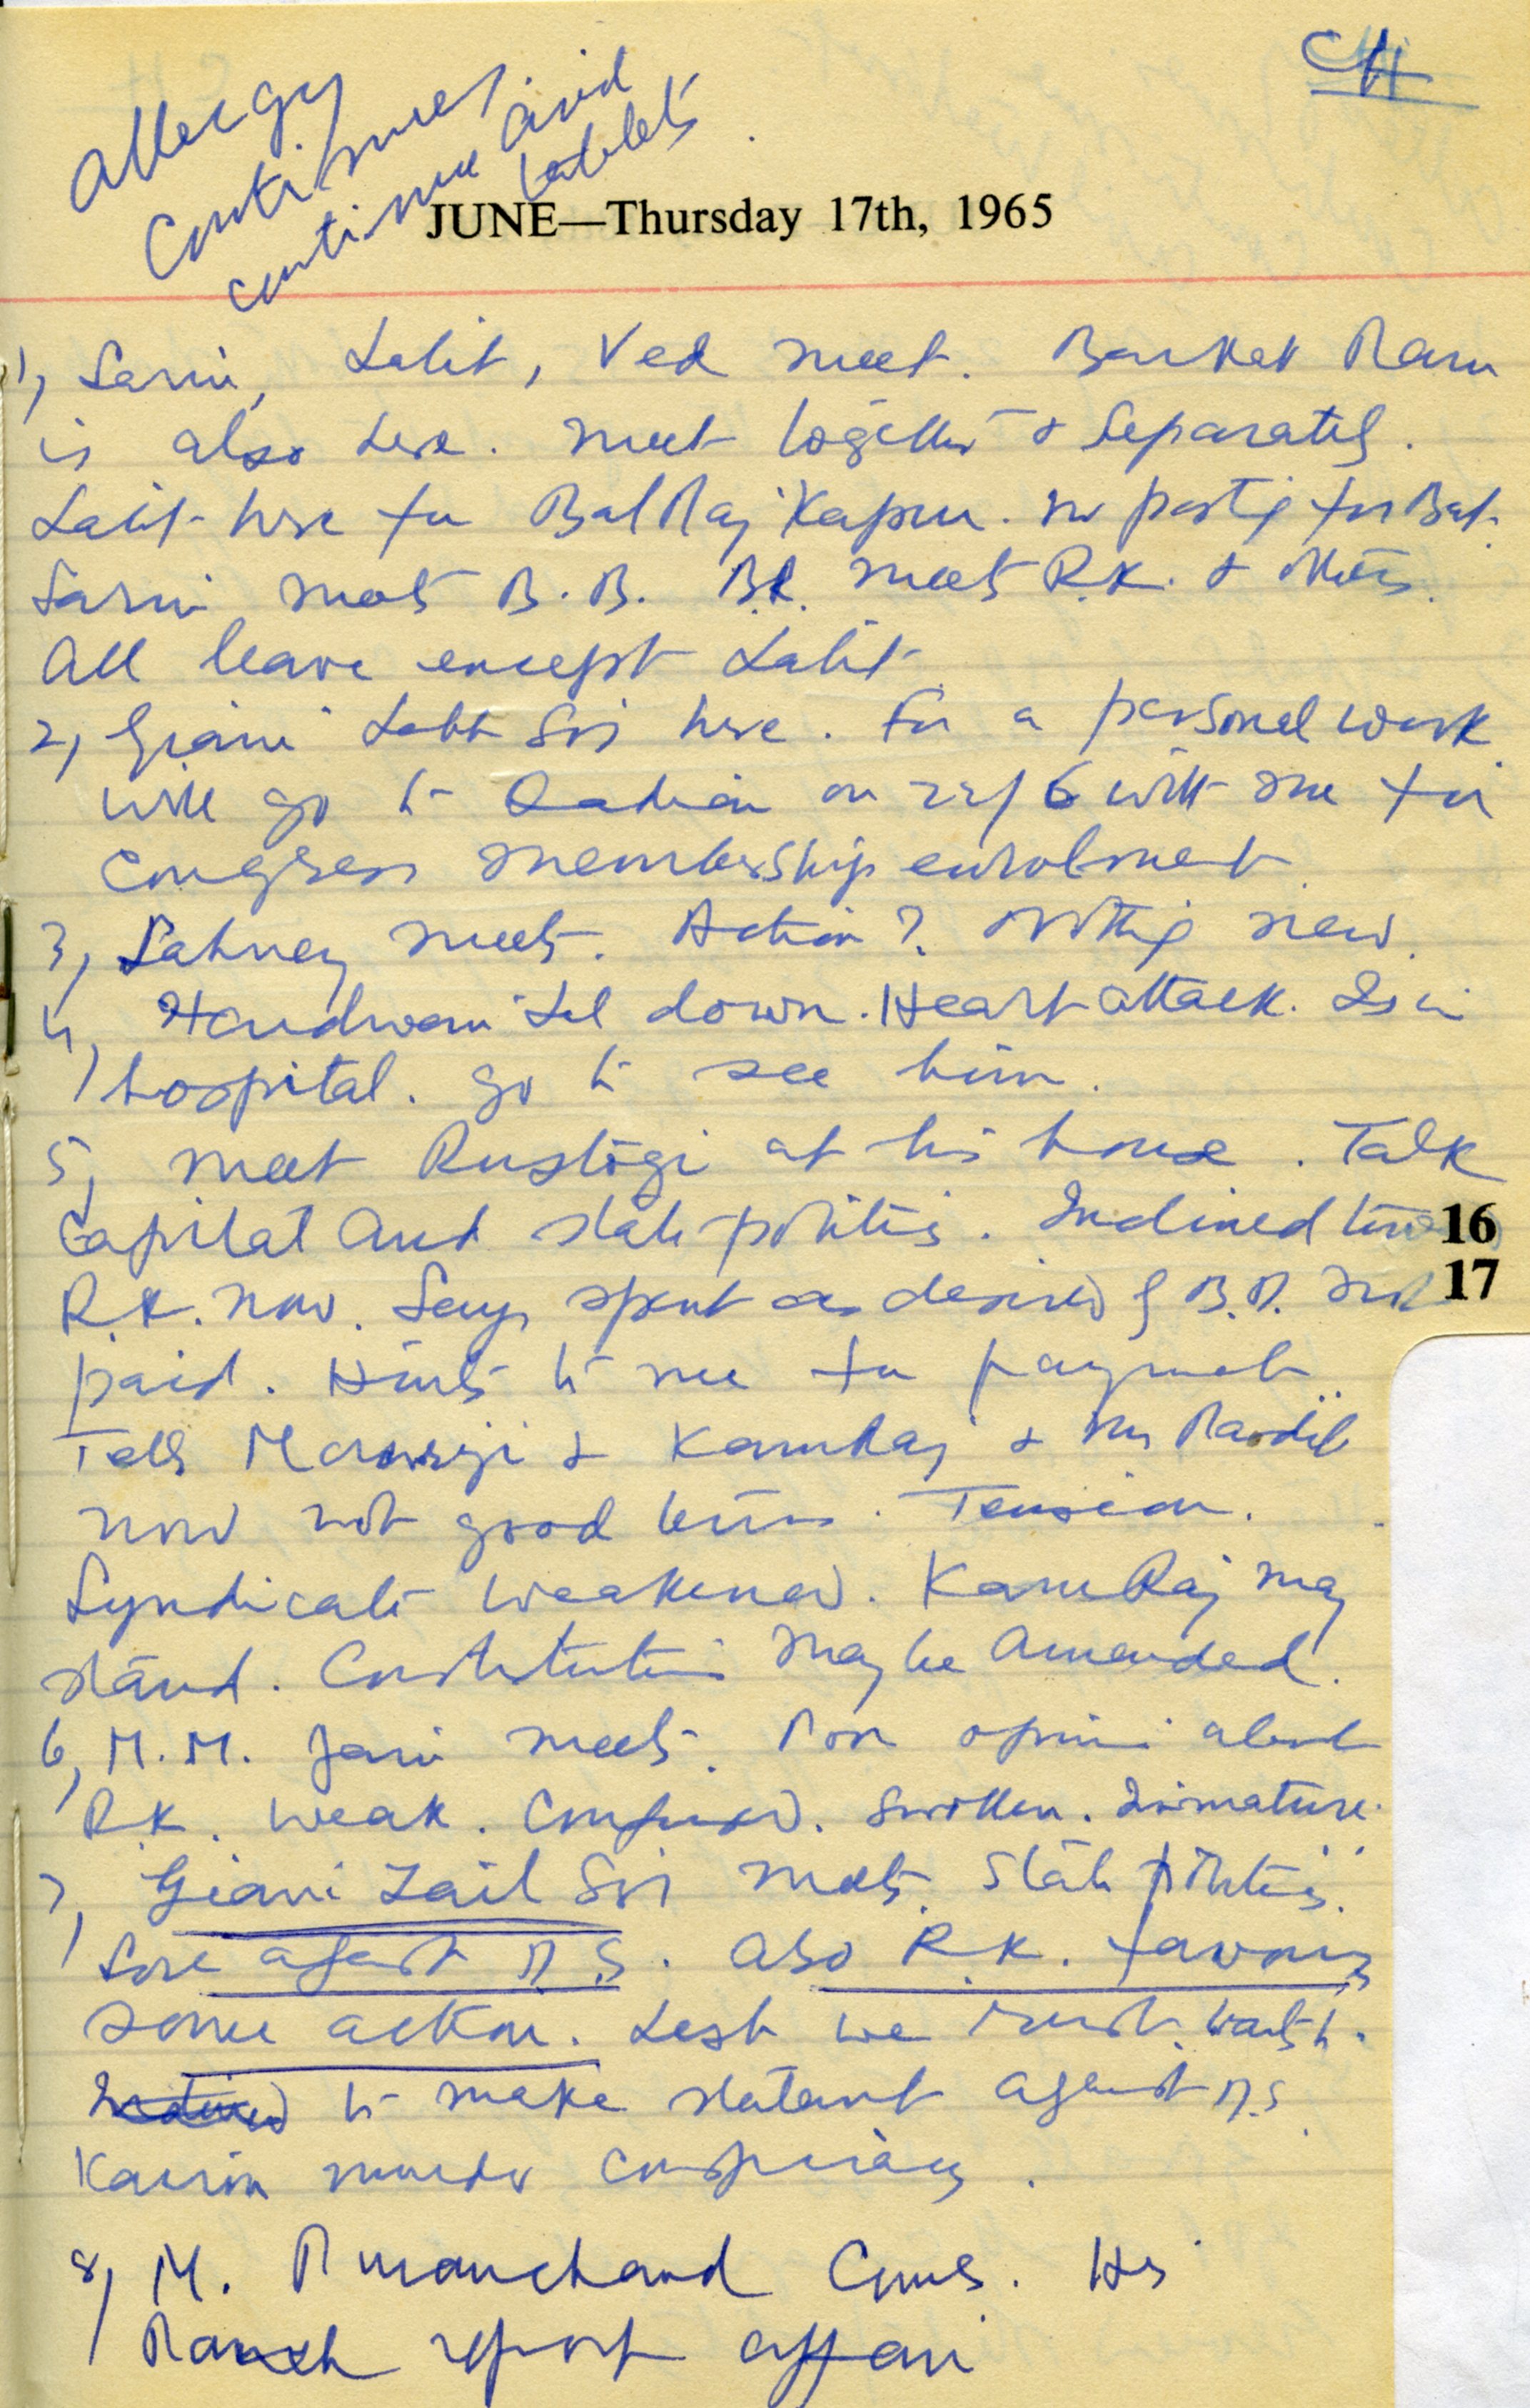 CH
Allergy
Continues
continue avid
tablets
JUNE—Thursday 17th, 1965
1, Sarin, Lalit, Ved meet. Barkat Ram
is also here. Meet together & Separately.
Lalit here for BalRaj Kapur. no posting for Bat.
Sarin meets B.B. B.R. meets R.K. & others.
All leave except Lalit
2, Giani Labh Sin here. For a personal work
will go to Qadian on 22/6 with me for
Congress membership enrolment.
3, Sahney meets. Action? Nothing new.
4, Handwani Lal down. Heart attack. Is in
hospital. go to see him.
5, Meet Rustogi at his house. Talk
Capital and state politics. Inclined
16
R.K. now. Says spent as desired by B.D. not
17
paid. Hints to me for payment.
Tells Morarji & KamRaj &
now not good terms. Tension.
Syndicate weakened. KamRaj may
stand. Constitution may be Amended.
6, M.M. Jain meets. Poor opinion about
R.K. weak. Confused. Swollen. Immature.
7, Giani Zail Sin meets. State politics.
Sore against D.S. Also R.K. favours
some action. Lest we rust. Wants to
to make statement against D.S.
Kairon murder Conspiracy.
8, M. Ramanchand Comes. His
report affair